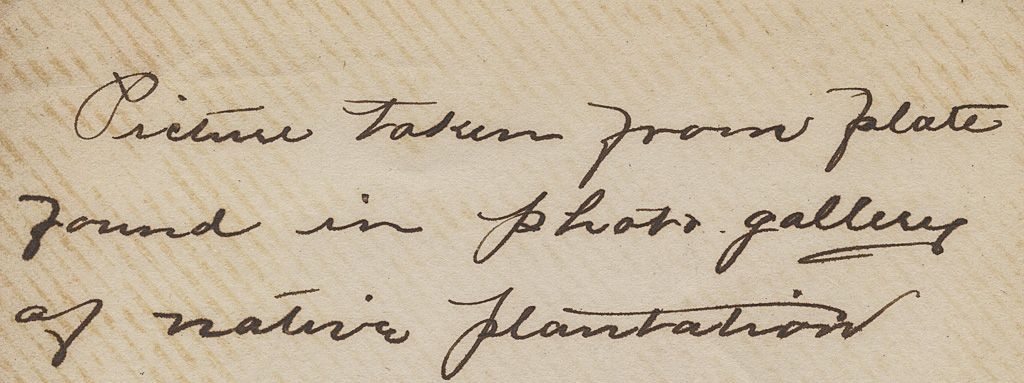 Picture taken from plate
found in photo gallery
of native plantation